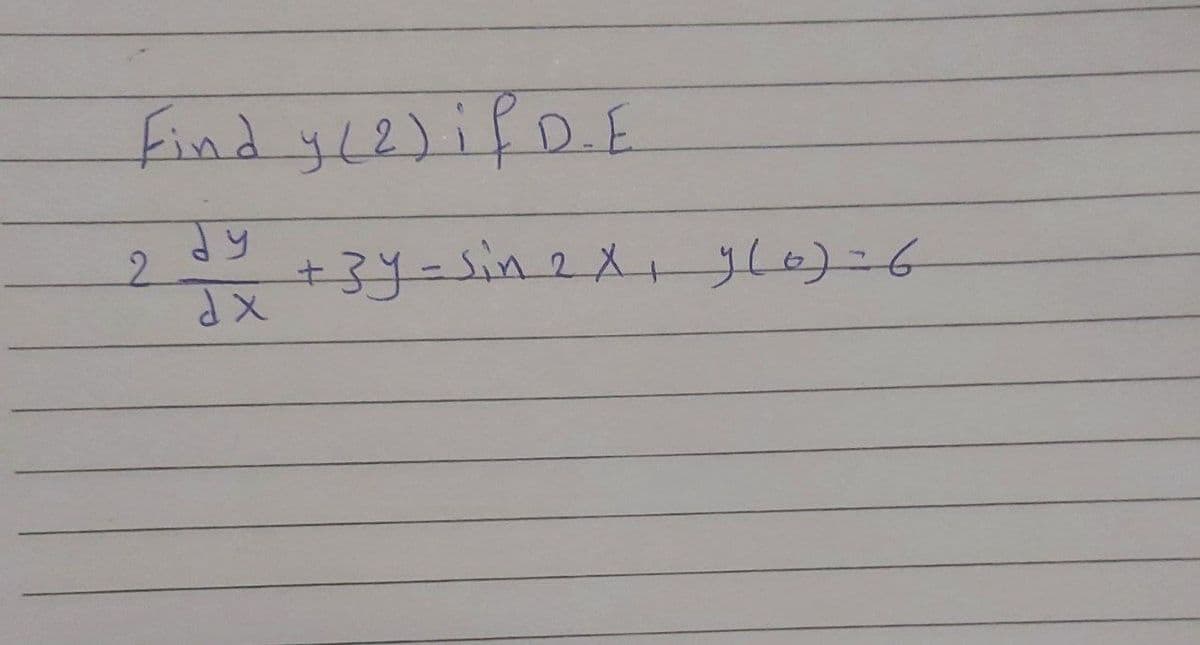 Find y(2) if D.E
2 dy/dx + 3y = sin 2x, y(0) = 6